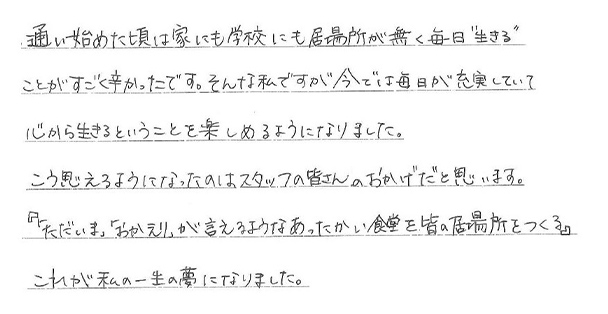 通い始めた頃は家にも学校にも居場所が無く毎日"生きる"
ことがすごく辛かったです。そんな私ですが今では毎日が充実していて
心から生きるということを楽しめるようになりました。
こう思えるようになったのはスタッフの皆さんのおかげだと思います。
『「ただいま」「おかえり」が言えるようなあったかい食堂を皆の居場所をつくる』
これが私の一生の夢になりました。